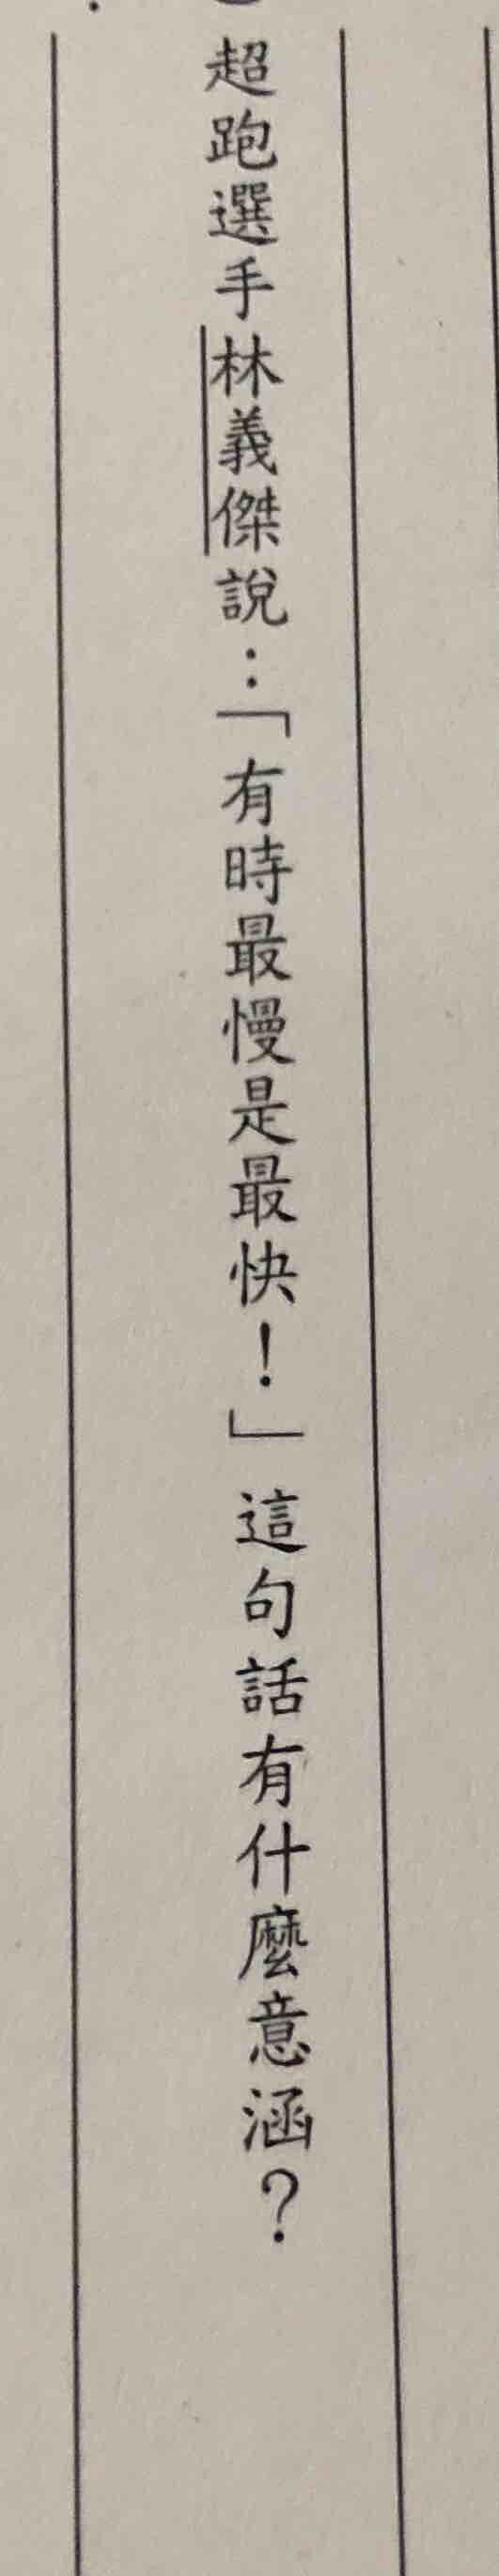 超跑選手林義傑說：「有時最慢是最快！」這句話有什麼意涵？